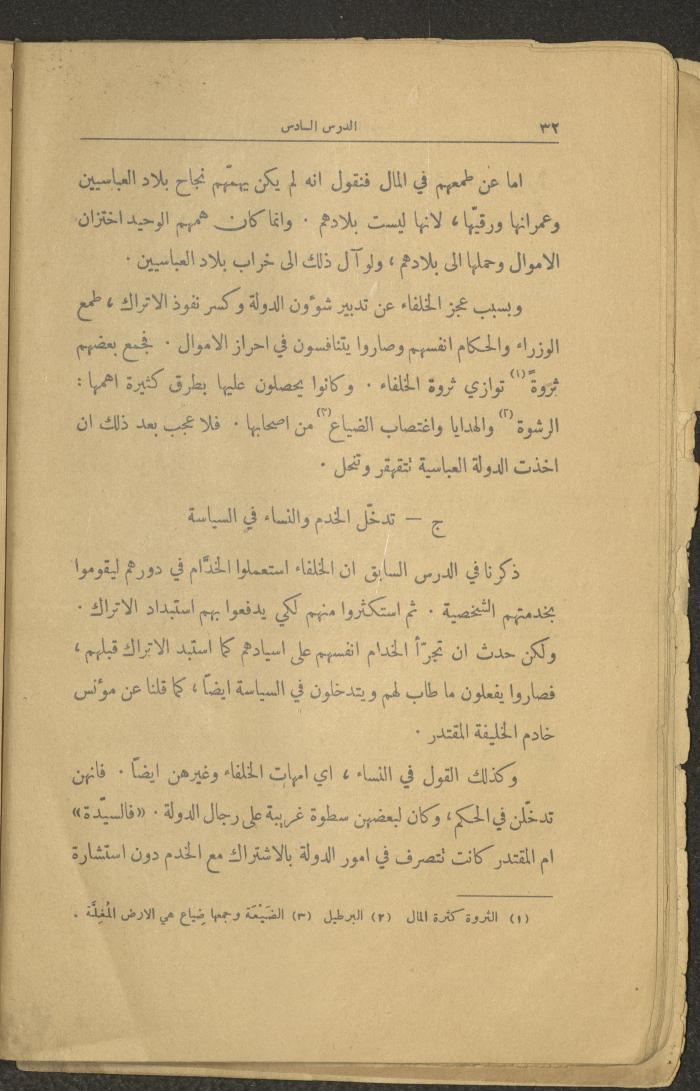 ٣٢ الدرس السادس
اما عن طمعهم في المال فنقول انه لم يكن يهمّهم نجاح بلاد العباسيين
وعمرانها ورقيّها، لانها ليست بلادهم . وانما كان همهم الوحيد اختزان
الاموال وحملها الى بلادهم، ولو آل ذلك الى خراب بلاد العباسيين .
وبسبب عجز الخلفاء عن تدبير شؤون الدولة وكسر نفوذ الاتراك ، طمع
الوزراء والحكام انفسهم وصاروا يتنافسون في احراز الاموال . فجمع بعضهم
ثروةً (١) توازي ثروة الخلفاء . وكانوا يحصلون عليها بطرق كثيرة اهمها :
الرشوة (٢) والهدايا واغتصاب الضياع (٣) من اصحابها . فلا عجب بعد ذلك ان
اخذت الدولة العباسية تتقهقر وتنحل .
ج — تدخّل الخدم والنساء في السياسة
ذكرنا في الدرس السابق ان الخلفاء استعملوا الخدَّام في دورهم ليقوموا
بخدمتهم الشخصية . ثم استكثروا منهم لكي يدفعوا بهم استبداد الاتراك .
ولكن حدث ان تجرّأ الخدام انفسهم على اسيادهم كما استبد الاتراك قبلهم ،
فصاروا يفعلون ما طاب لهم ويتدخلون في السياسة ايضاً ، كما قلنا عن مؤنس
خادم الخليفة المقتدر .
وكذلك القول في النساء ، اي امهات الخلفاء وغيرهن ايضاً . فانهن
تدخّلن في الحكم ، وكان لبعضهن سطوة غريبة على رجال الدولة . «فالسيّدة»
ام المقتدر كانت تتصرف في امور الدولة بالاشتراك مع الخدم دون استشارة
(١) الثروة كثرة المال (٢) البرطيل (٣) الضَيْعَة وجمعها ضِياع هي الارض المُغِلَّة .